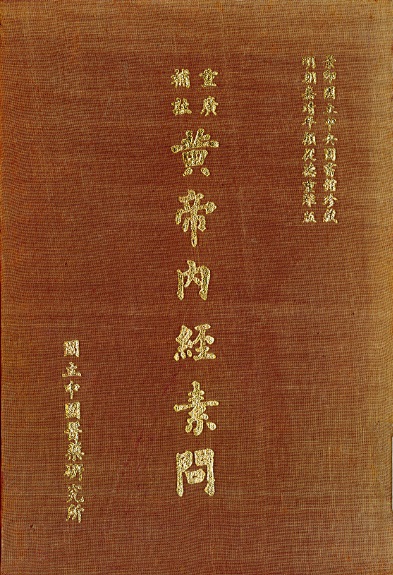 景印國立中央圖書館珍藏
明朝嘉靖年顧從德重雕版
重廣
補註
黃帝內經素問
國立中國醫藥研究所